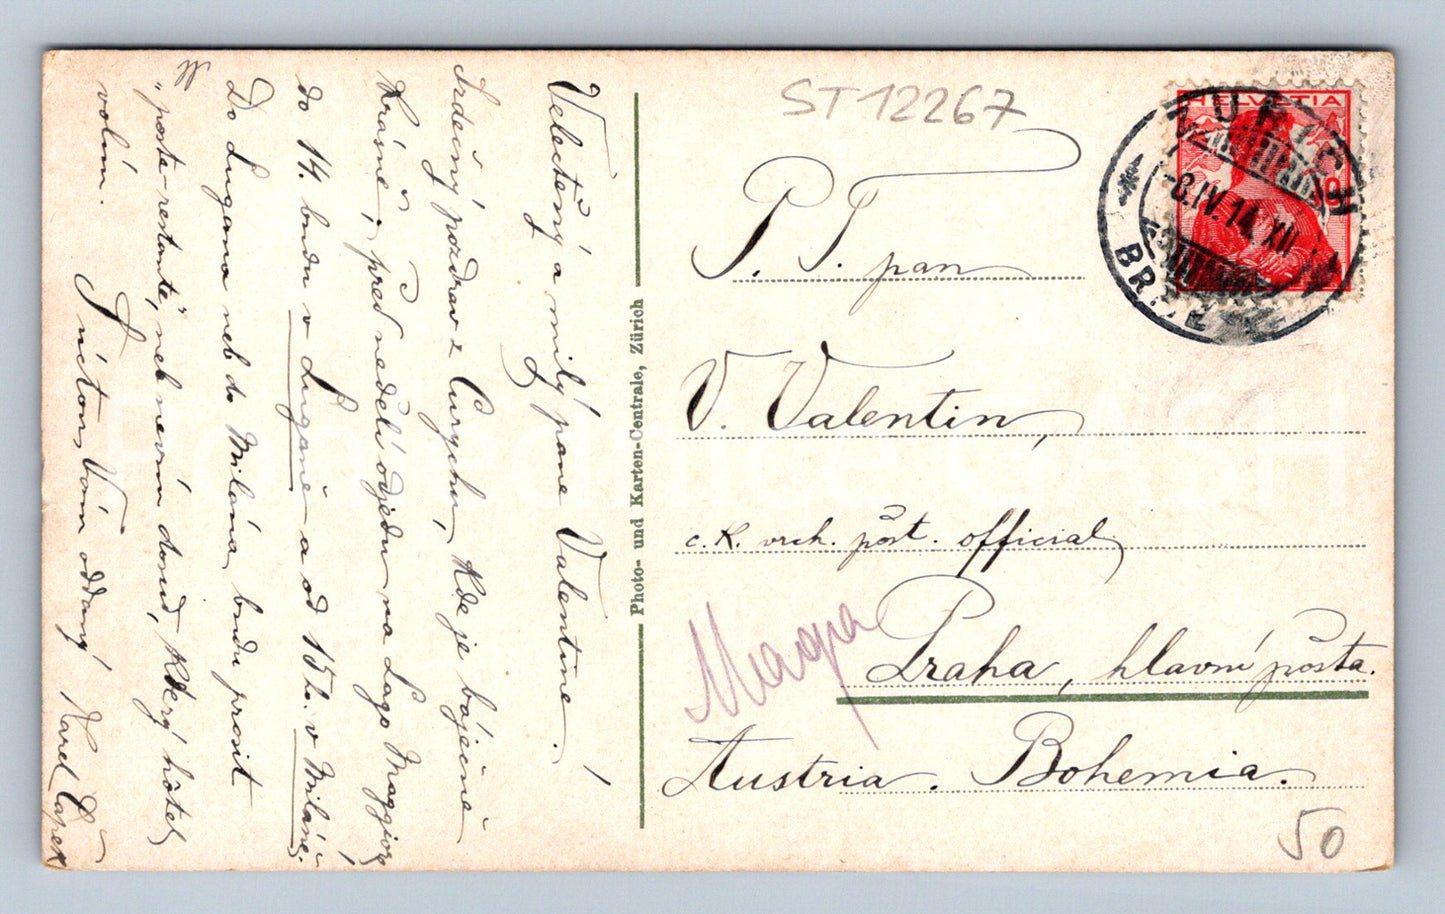 ST12267
HELVETIA
ZÜRICH
-8.IV.14.XII
BRIEF
P. T. pan
V. Valentin,
c. k. vrch. pošt. official
Praha, hlavní pošta.
Austria. Bohemia.
Maopa
50
Photo- und Karten-Centrale, Zürich
Velectěný a milý pane Valentine!
Srdečný pozdrav z Curychu, kde je báječně
krásně; před nedělí odjedu na Lago Maggiore,
do 14. budu v Luganě a od 15 h. v Miláně.
Do Lugana neb do Milána budu prosit
"poste-restante", neb nevím dosud, který hôtel
volím.
S úctou Vám oddaný
Karel Čapek